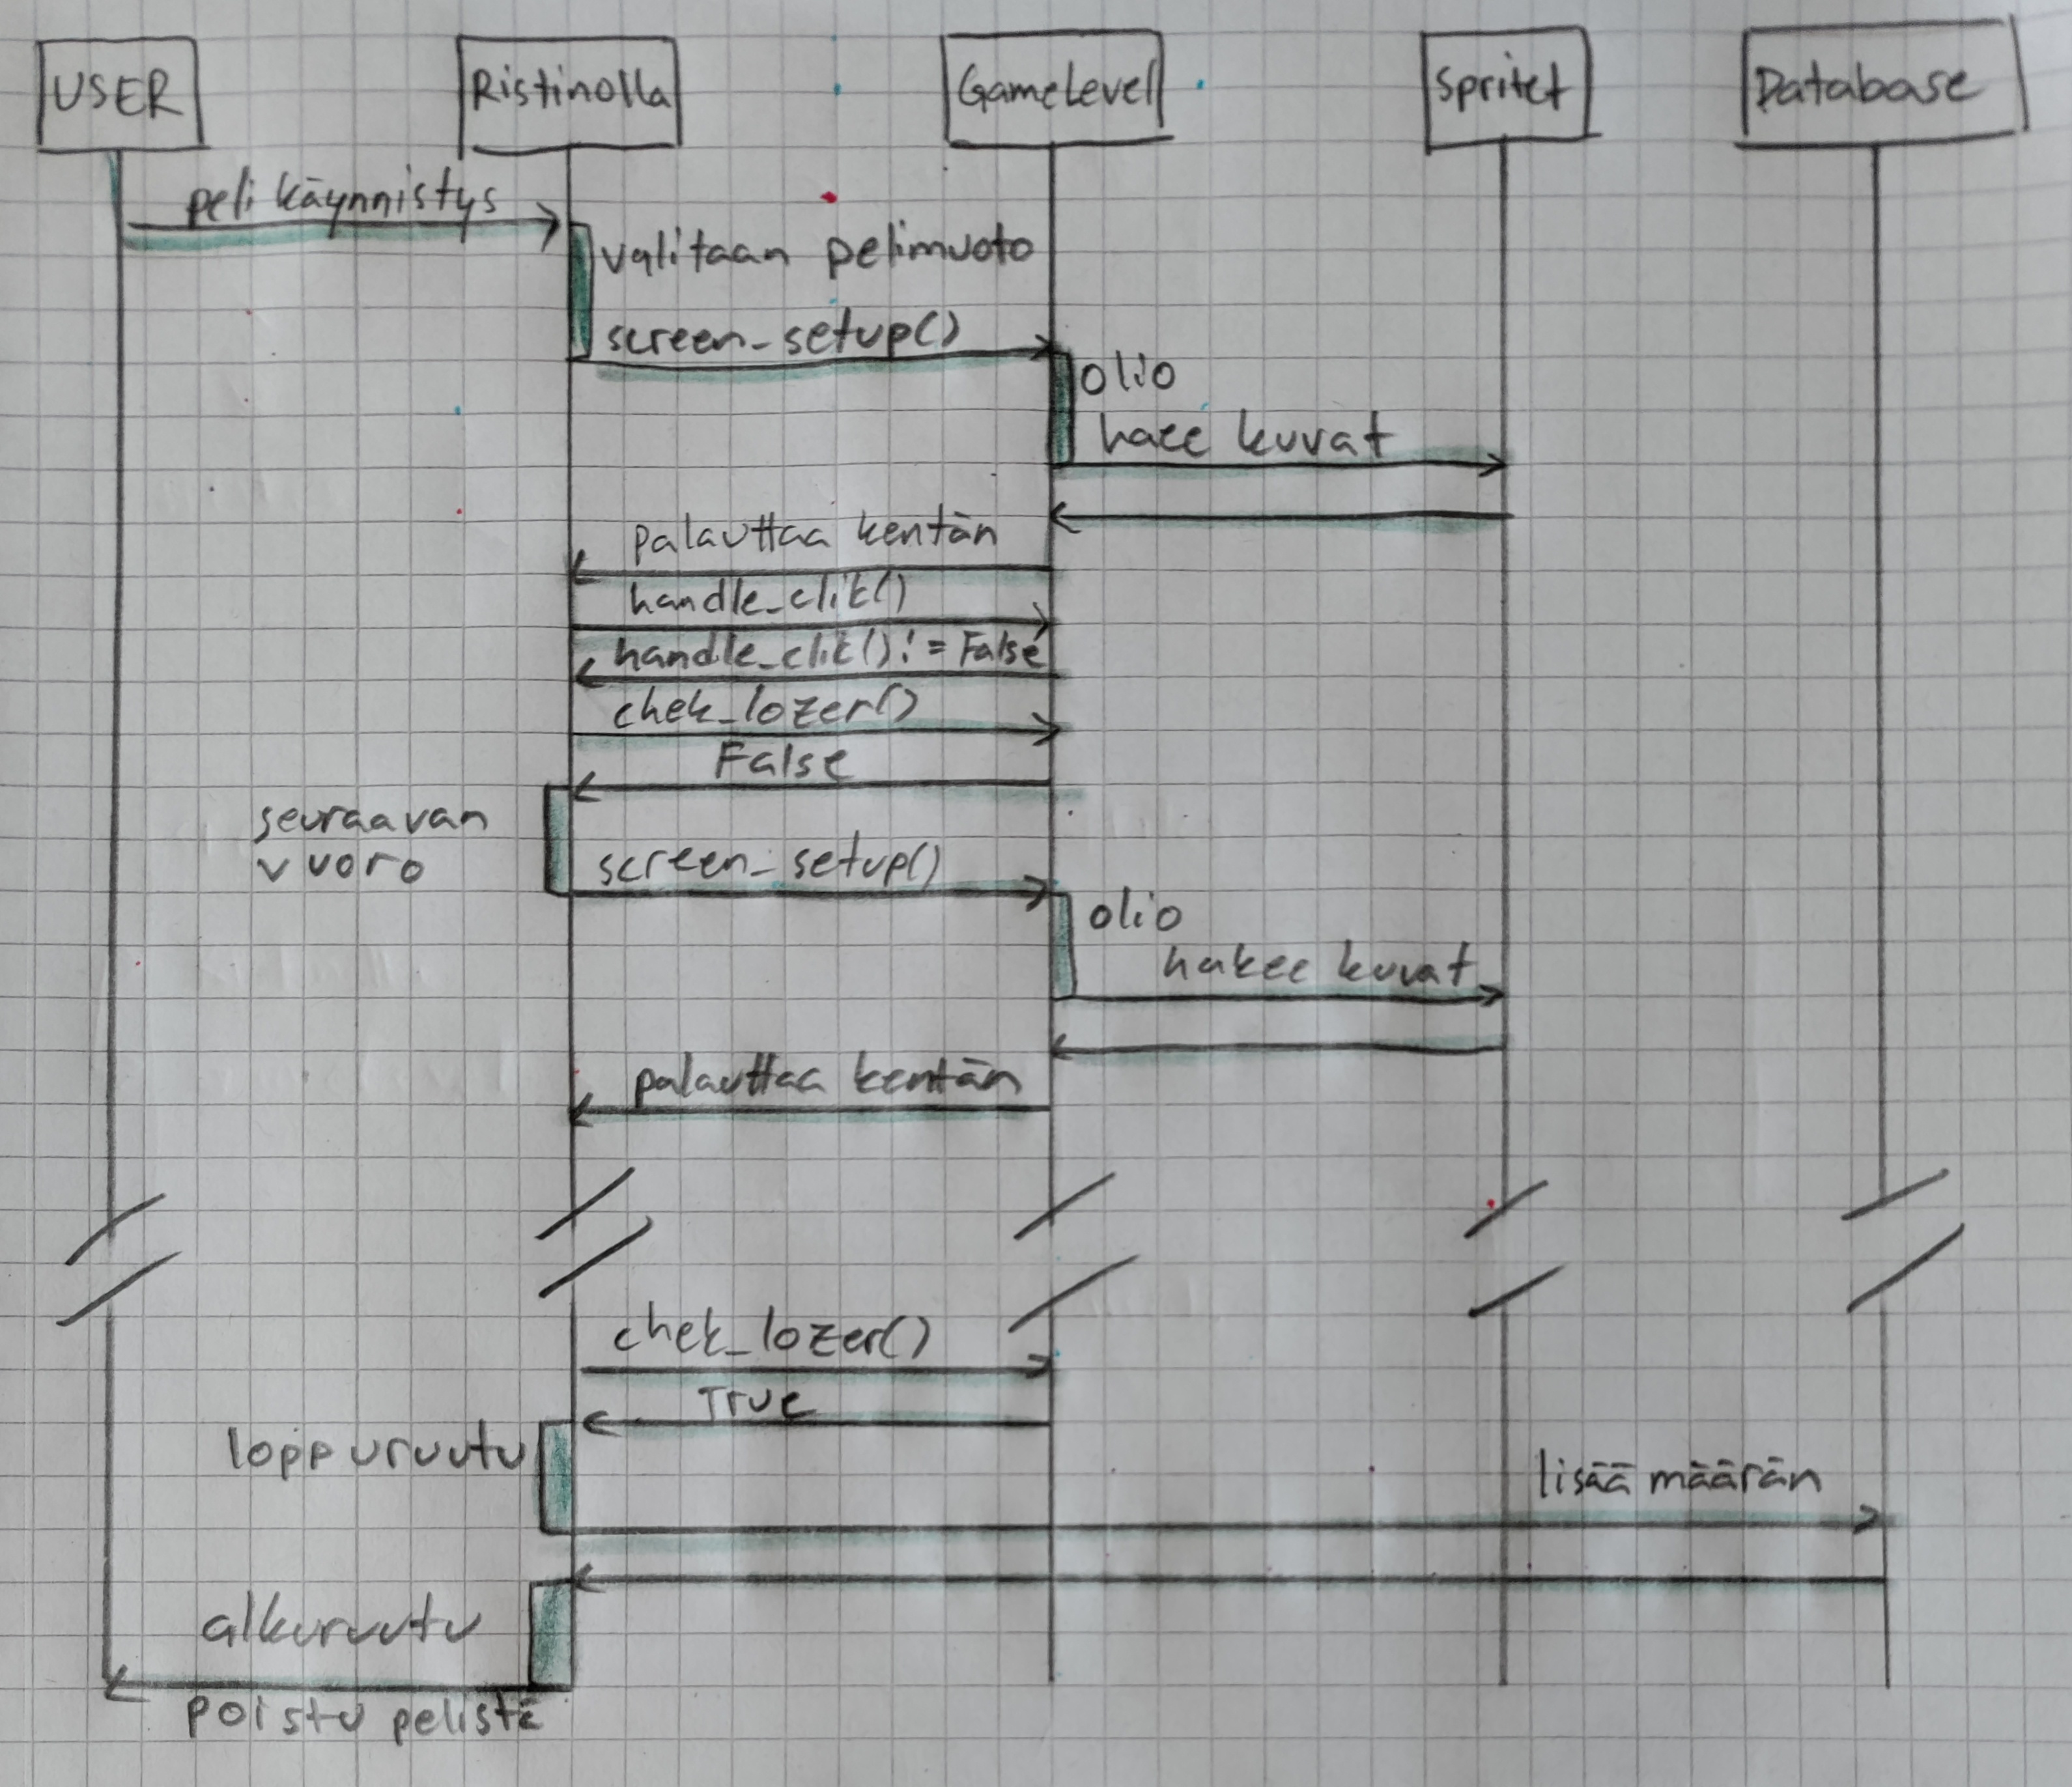 USER
Ristinolla
GameLevel
Spritet
Database
peli käynnistys
valitaan pelimuoto
screen_setup()
olio
haee kuvat
palauttaa kentän
handle_clik()
handle_clik() != False
chek_lozer()
False
seuraavan
vuoro
screen_setup()
olio
hakee kuvat
palauttaa kentän
chek_lozer()
True
loppuruutu
lisää määrän
alkuruutu
poistu pelistä